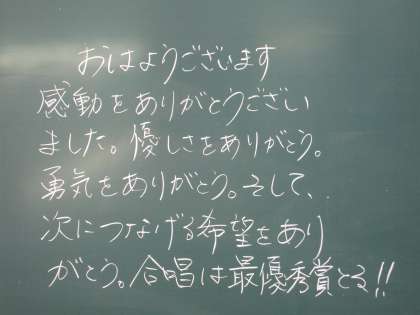 おはようございます
感動をありがとうござい
ました。優しさをありがとう。
勇気をありがとう。そして、
次につなげる希望をあり
がとう。合唱は最優秀賞とる!!